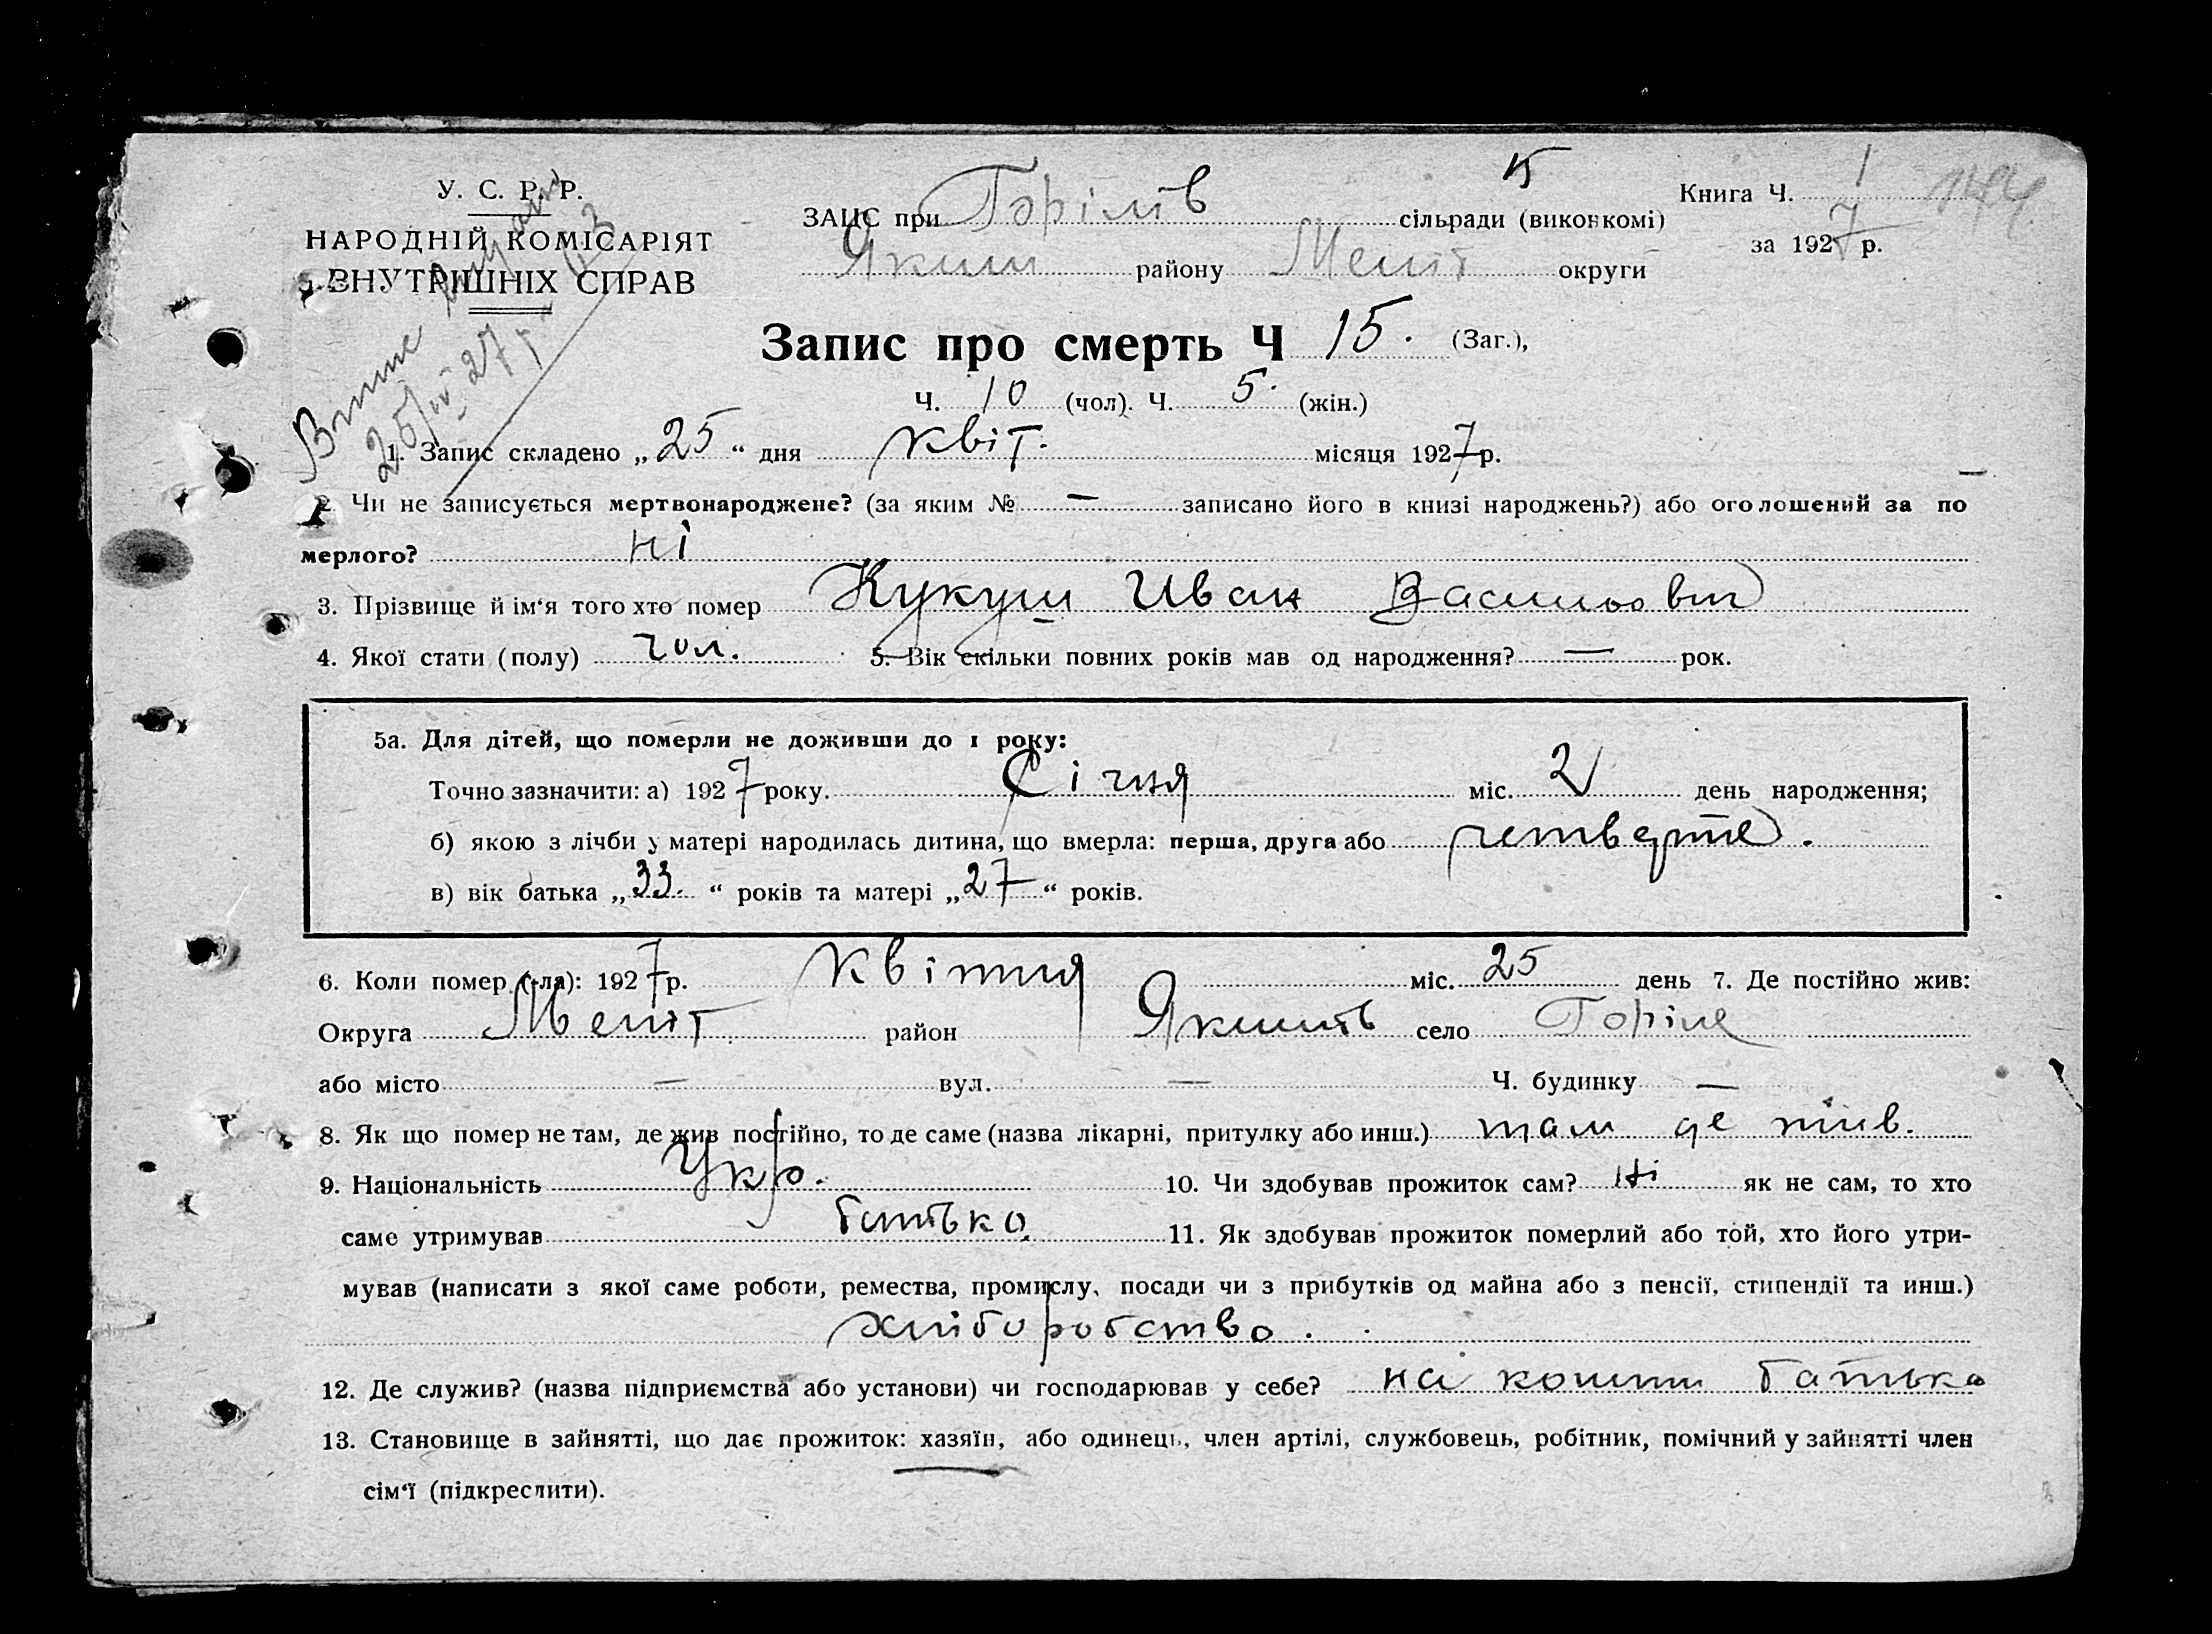 У. С. Р. Р.
НАРОДНІЙ КОМІСАРІЯТ
ВНУТРІШНІХ СПРАВ
ЗАЦС при Горілів сільради (виконкомі)
Яким району Меліт округи
Книга Ч. 1
за 1927 р.
Запис про смерть Ч 15. (Заг.),
Ч. 10 (чол). Ч. 5. (жін.)
25/IV 27 р.
1. Запис складено „25“ дня квіт. місяця 1927 р.
2. Чи не записується мертвонароджене? (за яким № — записано його в книзі народжень?) або оголошений за по
мерлого? ні
3. Прізвище й ім'я того хто помер Кукуш Иван Васильович
4. Якої стати (полу) чол. 5. Вік скільки повних років мав од народження? — рок.
5а. Для дітей, що померли не доживши до 1 року:
Точно зазначити: а) 1927 року. Січня міс. 2 день народження;
б) якою з лічби у матері народилась дитина, що вмерла: перша, друга або четверте.
в) вік батька „33.“ років та матері „27“ років.
6. Коли помер (-ла): 1927 р. квітня міс. 25 день 7. Де постійно жив:
Округа Меліт район Якимів село Горіле
або місто — вул. — Ч. будинку —
8. Як що помер не там, де жив постійно, то де саме (назва лікарні, притулку або инш.) там де жив.
9. Національність Укр. 10. Чи здобував прожиток сам? Ні як не сам, то хто
саме утримував батько 11. Як здобував прожиток померлий або той, хто його утри-
мував (написати з якої саме роботи, ремества, промислу, посади чи з прибутків од майна або з пенсії, стипендії та инш.)
хліборобство.
12. Де служив? (назва підприємства або установи) чи господарював у себе? на кошти батька
13. Становище в зайнятті, що дає прожиток: хазяїн, або одинець, член артілі, службовець, робітник, помічний у зайнятті член
сім'ї (підкреслити).